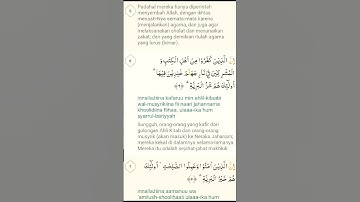 5
Padahal mereka hanya diperintah
menyembah Allah, dengan ikhlas
menaati-Nya semata-mata karena
(menjalankan) agama, dan juga agar
melaksanakan sholat dan menunaikan
zakat; dan yang demikian itulah agama
yang lurus (benar).
6
اِنَّ الَّذِيْنَ كَفَرُوْا مِنْ اَهْلِ الْكِتٰبِ وَ
الْمُشْرِكِيْنَ فِيْ نَارِ جَهَنَّمَ خٰلِدِيْنَ فِيْهَا ۗ
اُولٰۤىِٕكَ هُمْ شَرُّ الْبَرِيَّةِ ۗ ﴿٦﴾
innallaziina kafaruu min ahlil-kitaabi
wal-musyrikiina fii naari jahannama
khoolidiina fiihaa, ulaaa-ika hum
syarrul-bariyyah
Sungguh, orang-orang yang kafir dari
golongan Ahli Kitab dan orang-orang
musyrik (akan masuk) ke Neraka Jahanam;
mereka kekal di dalamnya selama-lamanya.
Mereka itu adalah sejahat-jahat makhluk.
7
اِنَّ الَّذِيْنَ اٰمَنُوْا وَعَمِلُوا الصّٰلِحٰتِ ۙ اُولٰۤىِٕكَ
هُمْ خَيْرُ الْبَرِيَّةِ ۗ ﴿٧﴾
innallaziina aamanuu wa
'amilush-shoolihaati ulaaa-ika hum